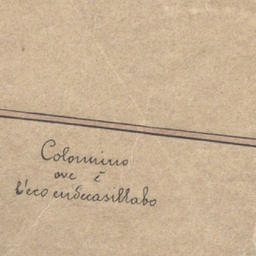 Colonnino
ove è
l'eco endecasillabo